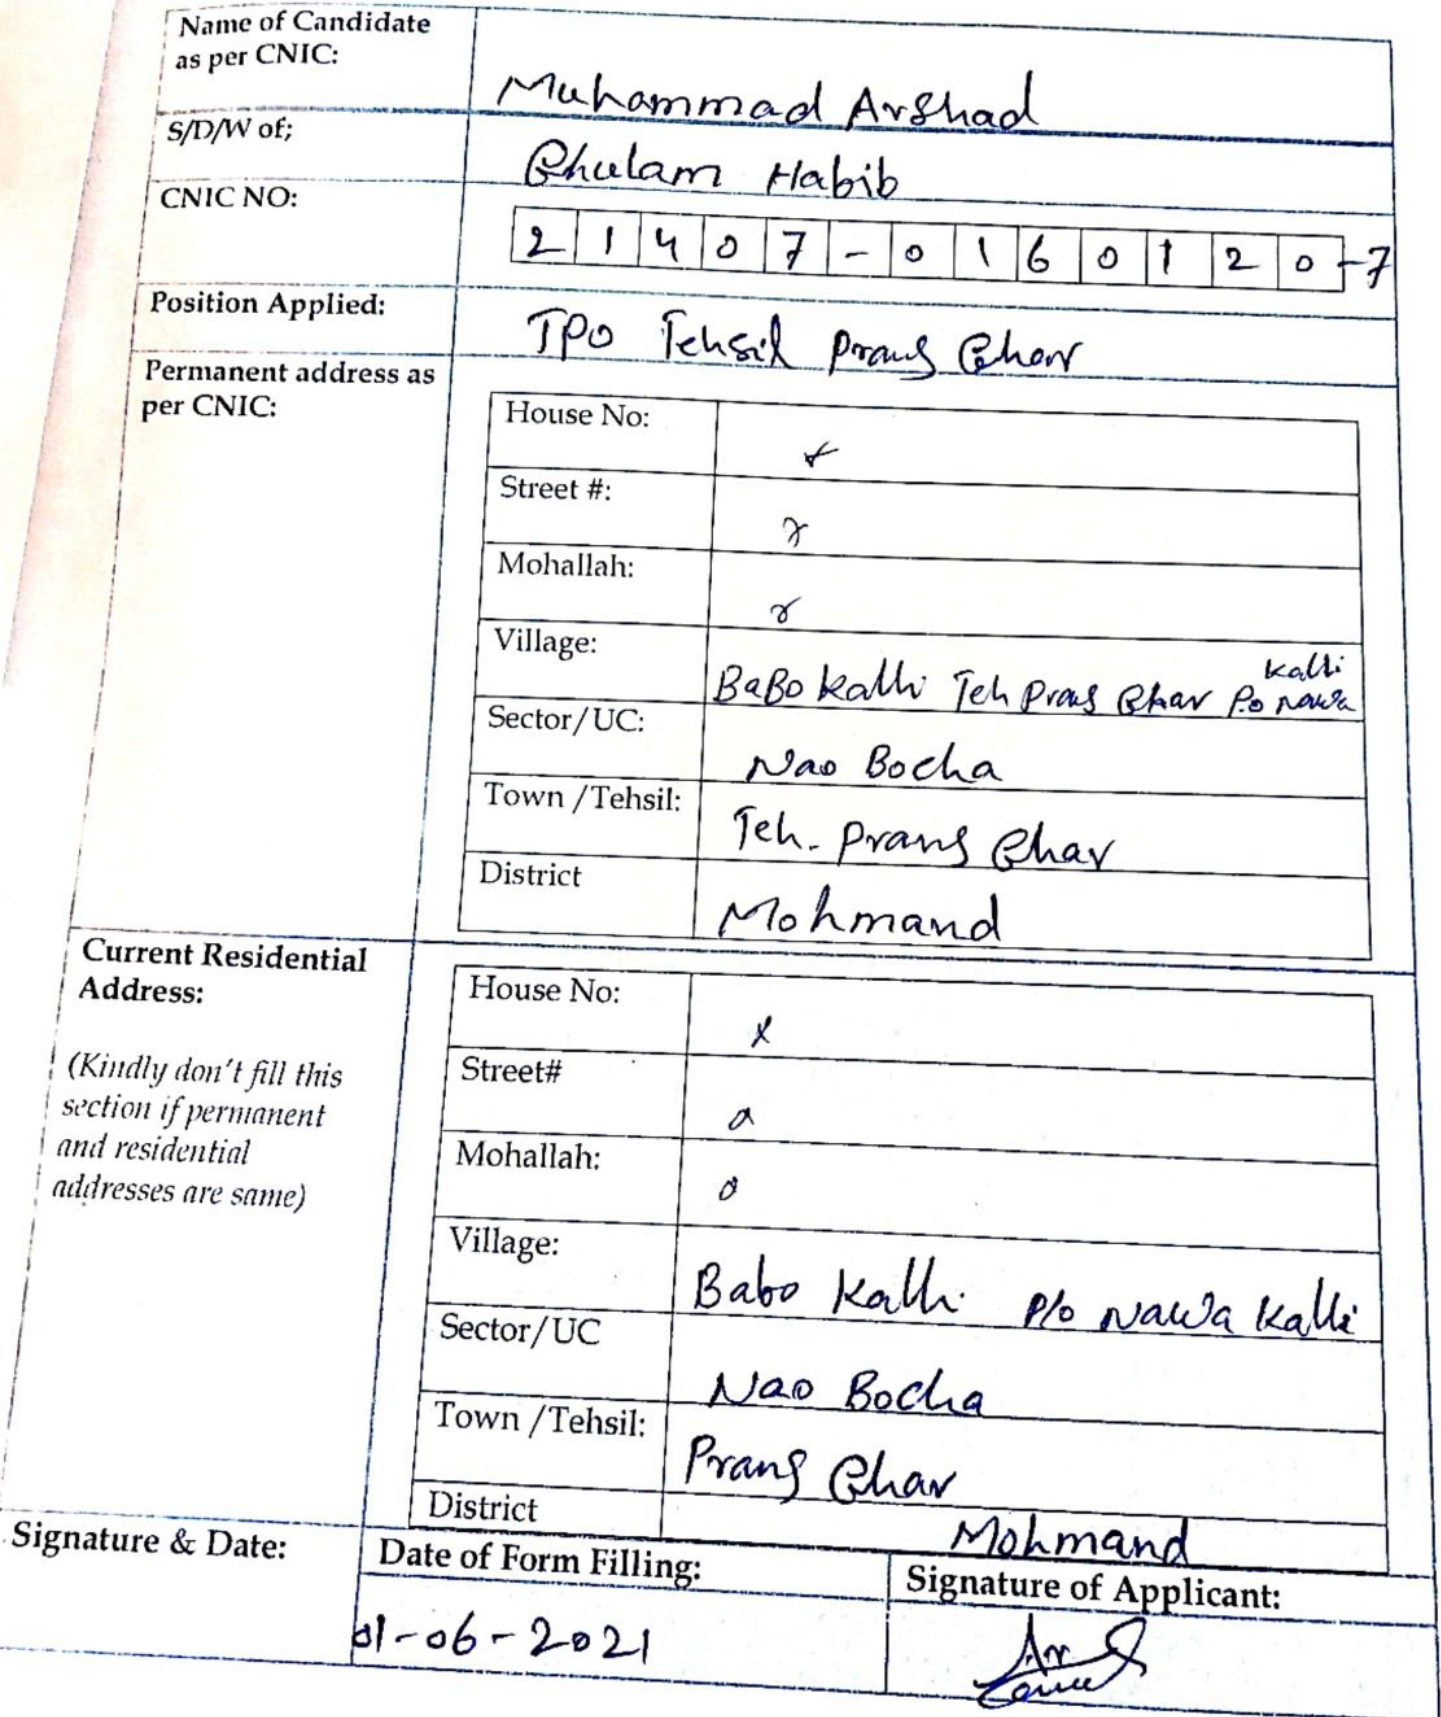 Name of Candidate
as per CNIC:
Muhammad Arshad
S/D/W of;
Ghulam Habib
CNIC NO:
21407-0160120-7
Position Applied:
TPO Tehsil Prang Ghar
Permanent address as
per CNIC:
House No:
x
Street #:
x
Mohallah:
x
Village:
BaBo kalli Teh Prang Ghar P.o nawa kalli
Sector/UC:
Nao Bocha
Town /Tehsil:
Teh. Prang Ghar
District
Mohmand
Current Residential
Address:
(Kindly don't fill this
section if permanent
and residential
addresses are same)
House No:
x
Street#
Mohallah:
Village:
Babo Kalli P/o Nawa Kalli
Sector/UC
Nao Bocha
Town /Tehsil:
Prang Ghar
District
Mohmand
Signature & Date:
Date of Form Filling:
01-06-2021
Signature of Applicant: